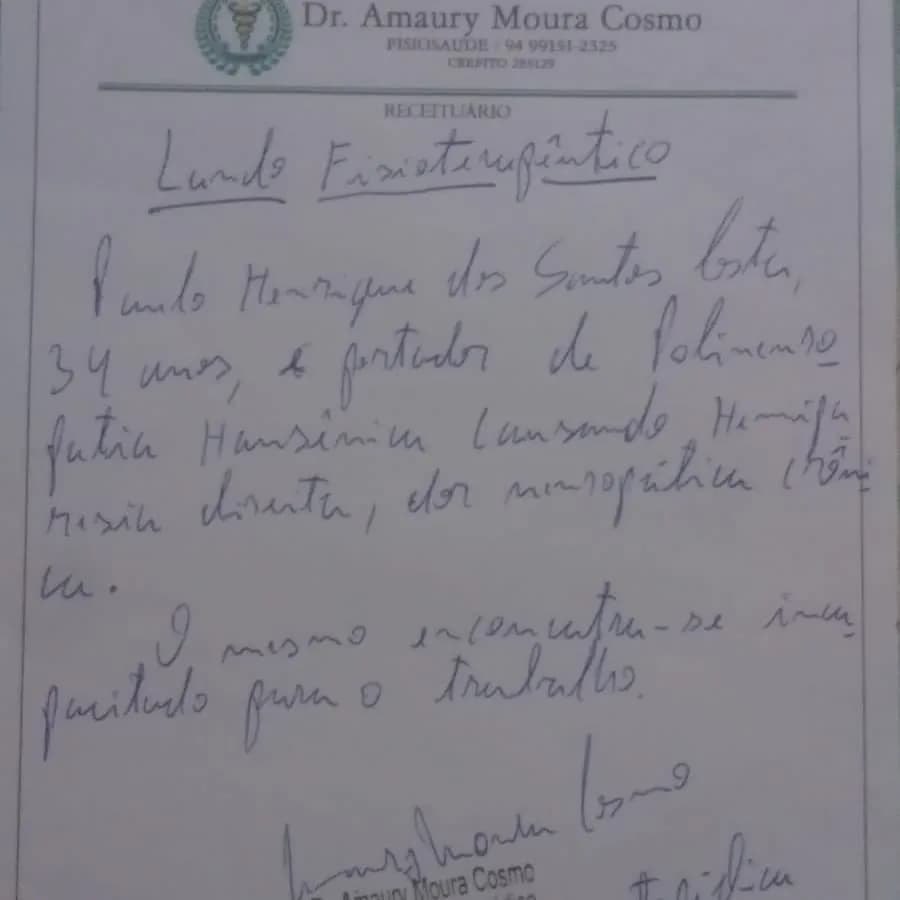 Dr. Amaury Moura Cosmo
FISIOSAÚDE - 94 99151-2325
CREFITO 285129
RECEITUÁRIO
Laudo Fisioterapêutico
Paulo Henrique dos Santos Costa,
34 anos, é portador de Polineuro
patia Hansênica causando Hemipa
resia direita, dor neuropática crôni
ca.
O mesmo encontra-se inca
pacitado para o trabalho.
Amaury Moura Cosmo
Amaury Moura Cosmo